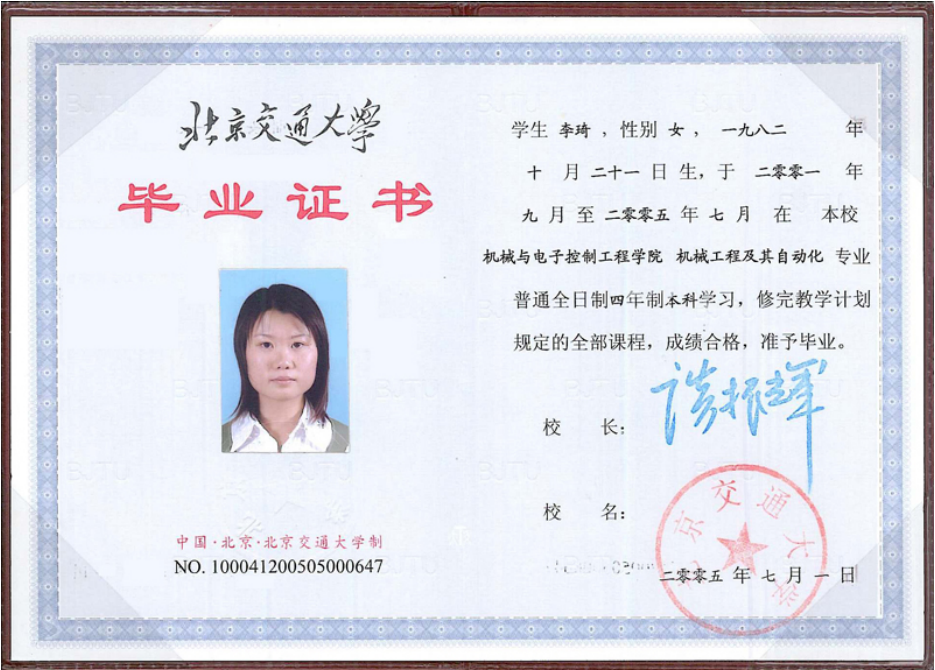 北京交通大學
毕业证书
中国·北京·北京交通大学制
NO. 100041200505000647
学生 李琦 ，性别 女 ， 一九八二 年
十 月 二十一 日 生，于 二零零一 年
九 月 至 二零零五 年 七 月 在 本校
机械与电子控制工程学院 机械工程及其自动化 专业
普通全日制四年制本科学习，修完教学计划
规定的全部课程，成绩合格，准予毕业。
校 长：
谈振辉
校 名：
北京交通大学
二零零五 年 七 月 一 日
BJTU
BJTU
BJTU
BJTU